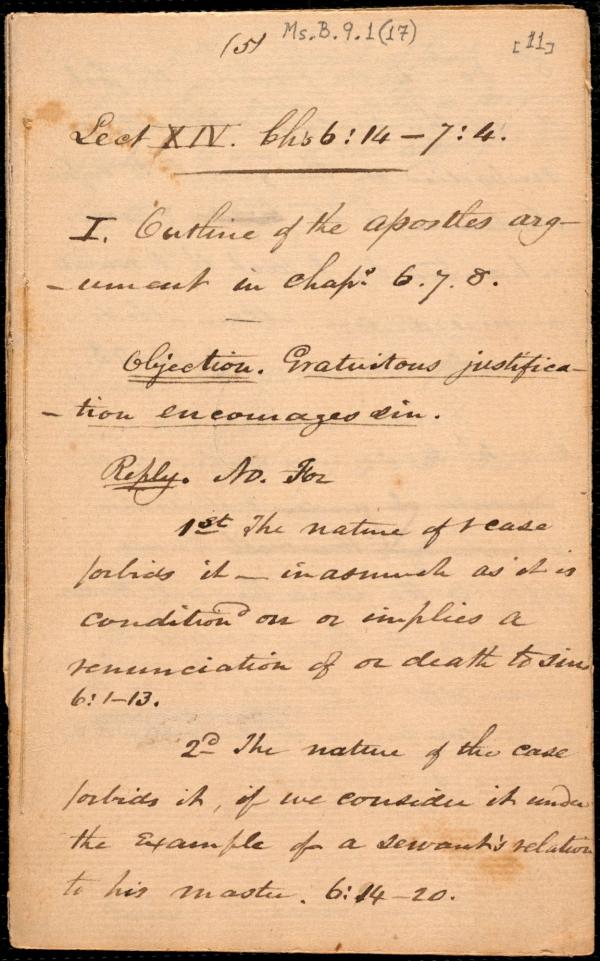 (5) Ms. B. 9. 1 (17) [11]
Lect XIV. Chs 6: 14 – 7: 4.
I. Outline of the apostles arg-
-ument in chaps. 6. 7. 8.
Objection. Gratuitous justifica-
-tion encourages sin.
Reply. No. For
1st The nature of t case
forbids it – inasmuch as it is
conditiond on or implies a
renunciation of or death to sin.
6: 1–13.
2d The nature of the case
forbids it, if we consider it under
the Example of a servant's relation
to his master. 6: 14–20.